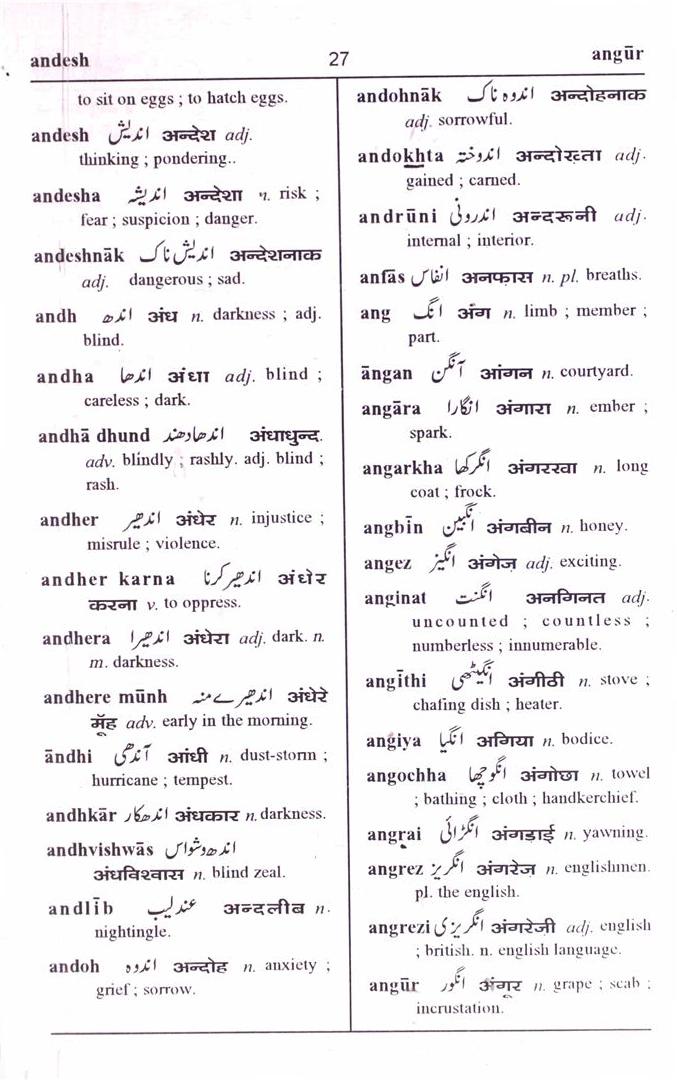 andesh 27 angūr
to sit on eggs ; to hatch eggs.
andesh اندیش अन्देश adj.
thinking ; pondering..
andesha اندیشہ अन्देशा n. risk ;
fear ; suspicion ; danger.
andeshnāk اندیش ناک अन्देशनाक
adj. dangerous ; sad.
andh اندھ अंध n. darkness ; adj.
blind.
andha اندھا अंधा adj. blind ;
careless ; dark.
andhā dhund اندھادھند अंधाधुन्द.
adv. blindly ; rashly. adj. blind ;
rash.
andher اندھیر अंधेर n. injustice ;
misrule ; violence.
andher karna اندھیر کرنا अंधेर
करना v. to oppress.
andhera اندھیرا अंधेरा adj. dark. n.
m. darkness.
andhere mūnh اندھیرے منہ अंधेरे
मूँह adv. early in the morning.
āndhi آندھی आंधी n. dust-storm ;
hurricane ; tempest.
andhkār اندھکار अंधकार n. darkness.
andhvishwās اندھ وشواس
अंधविश्वास n. blind zeal.
andlīb عندلیب अन्दलीब n.
nightingle.
andoh اندوہ अन्दोह n. anxiety ;
grief ; sorrow.
andohnāk اندوہ ناک अन्दोहनाक
adj. sorrowful.
andokhta اندوختہ अन्दोख्ता adj.
gained ; carned.
andrūni اندرونی अन्दरूनी adj.
internal ; interior.
anfās انفاس अनफ़ास n. pl. breaths.
ang انگ अंग n. limb ; member ;
part.
āngan آنگن आंगन n. courtyard.
angāra انگارا अंगारा n. ember ;
spark.
angarkha انگرکھا अंगररवा n. long
coat ; frock.
angbīn انگبین अंगबीन n. honey.
angez انگیز अंगेज़ adj. exciting.
anginat انگنت अनगिनत adj.
uncounted ; countless ;
numberless ; innumerable.
angīthi انگیٹھی अंगीठी n. stove ;
chafing dish ; heater.
angiya انگیا अगिया n. bodice.
angochha انگوچھا अंगोछा n. towel
; bathing ; cloth ; handkerchief.
angrai انگڑائی अंगड़ाई n. yawning.
angrez انگریز अंगरेज़ n. englishmen.
pl. the english.
angrezi انگریزی अंगरेज़ी adj. english
; british. n. english language.
angūr انگور अंगूर n. grape ; scab ;
incrustation.